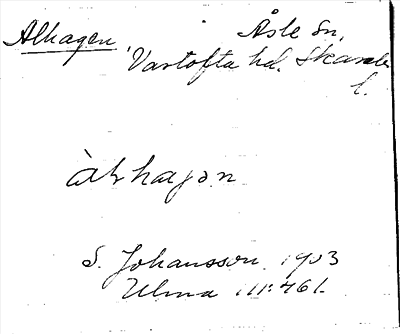 Alhagen, Åsle sn,
Vartofta hd. Skarab.
l.
àlhagən
S. Johansson 1903
Ulma 111:461.